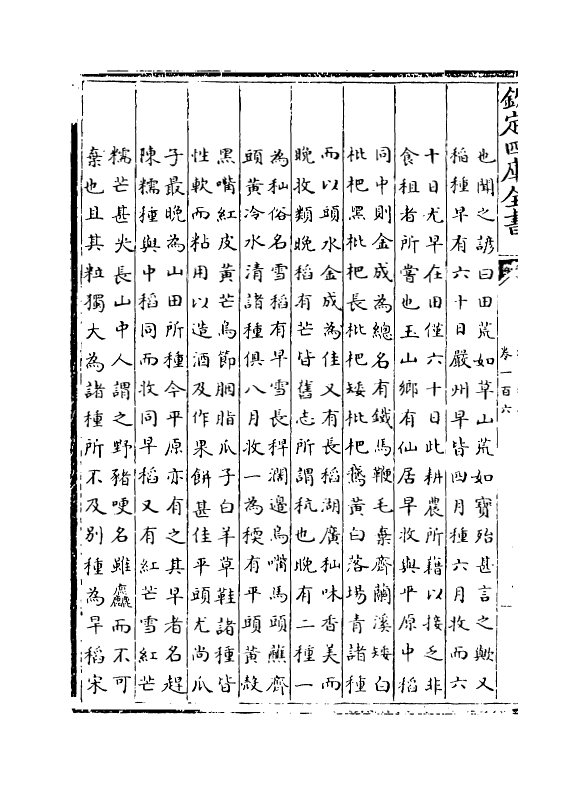 欽定四庫全書
卷一百六
也聞之諺曰田荒如草山荒如寳殆甚言之歟又
稲種早有六十日嚴州早皆四月種六月收而六
十日尤早在田僅六十日此耕農所藉以接乏非
食租者所嘗也玉山鄉有仙居早收與平原中稻
同中則金成為總名有鐵馬鞭毛棗齊蘭溪矮白
枇杷黑枇杷長枇杷矮枇杷鵞黄白落塲青諸種
而以頭水金成為佳又有長稻湖廣秈味香美而
晚收類晚稻有芒皆舊志所謂秔也晚有二種一
為秈俗名雪稻有早雪長稈瀾邉烏嘴馬頭蘸齊
頭黄冷水清諸種俱八月收一為稬有平頭黄殻
黑嘴紅皮黄芒烏節胭脂瓜子白羊草鞋諸種皆
性軟而粘用以造酒及作果餅甚佳平頭尤尚瓜
子最晚為山田所種今平原亦有之其早者名趕
陳糯種與中稻同而收同早稻又有紅芒雪紅芒
糯芒甚火長山中人謂之野豬哽名雖麤而不可
棄也且其粒獨大為諸種所不及别種為旱稻宋